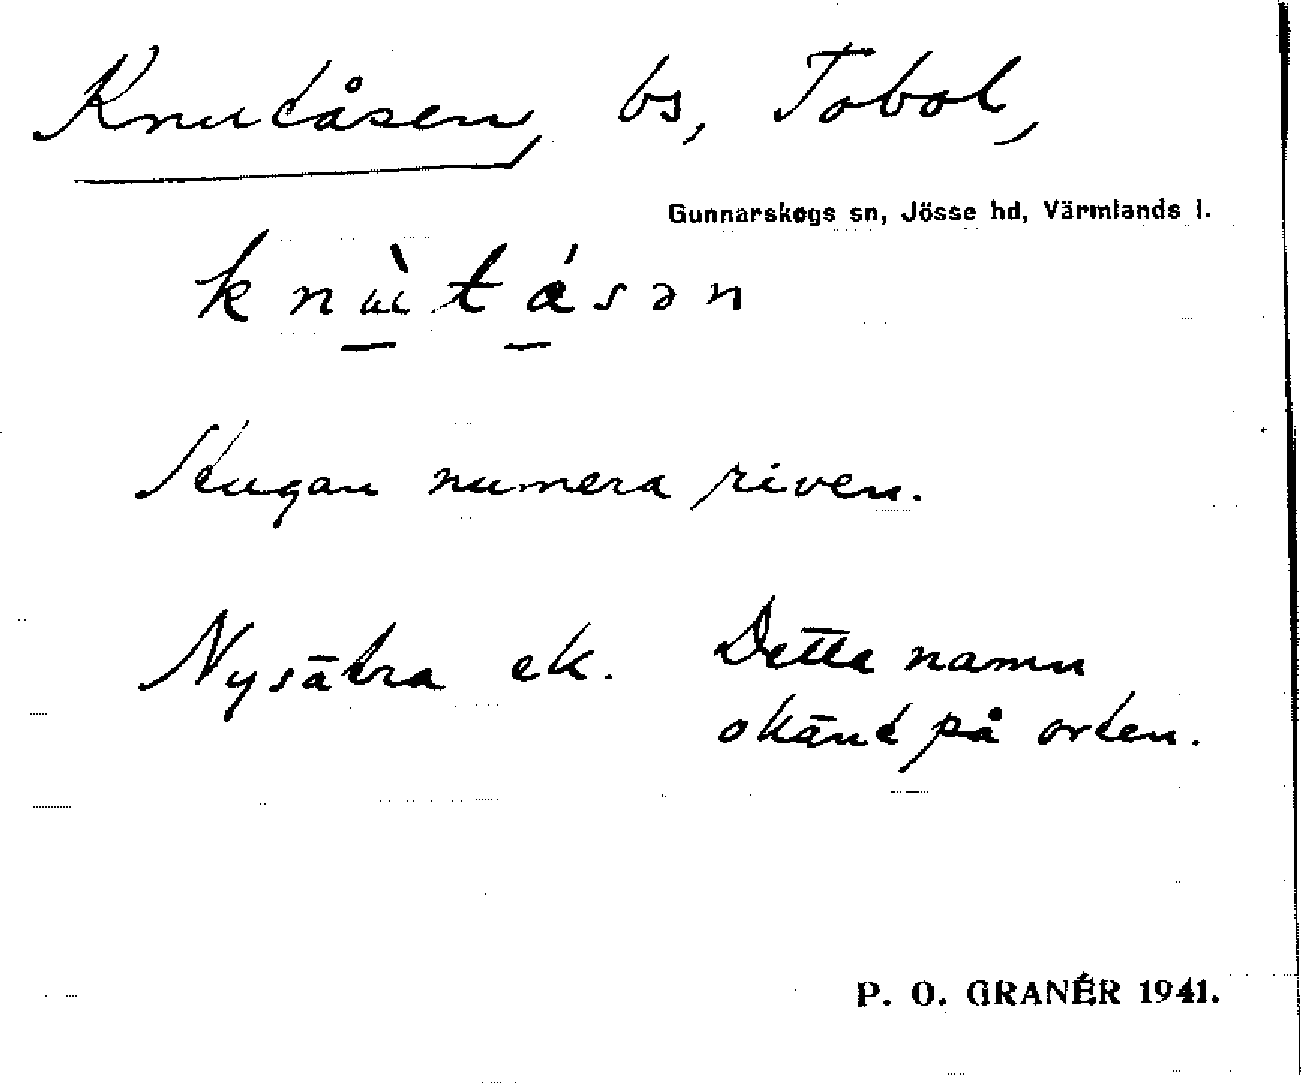 Knutåsen, bs, Tobol,
Gunnarskogs sn, Jösse hd, Värmlands l.
knùtásən
Stugan numera riven.
Nysätra ek. Detta namn
okänt på orten.
P. O. GRANÉR 1941.